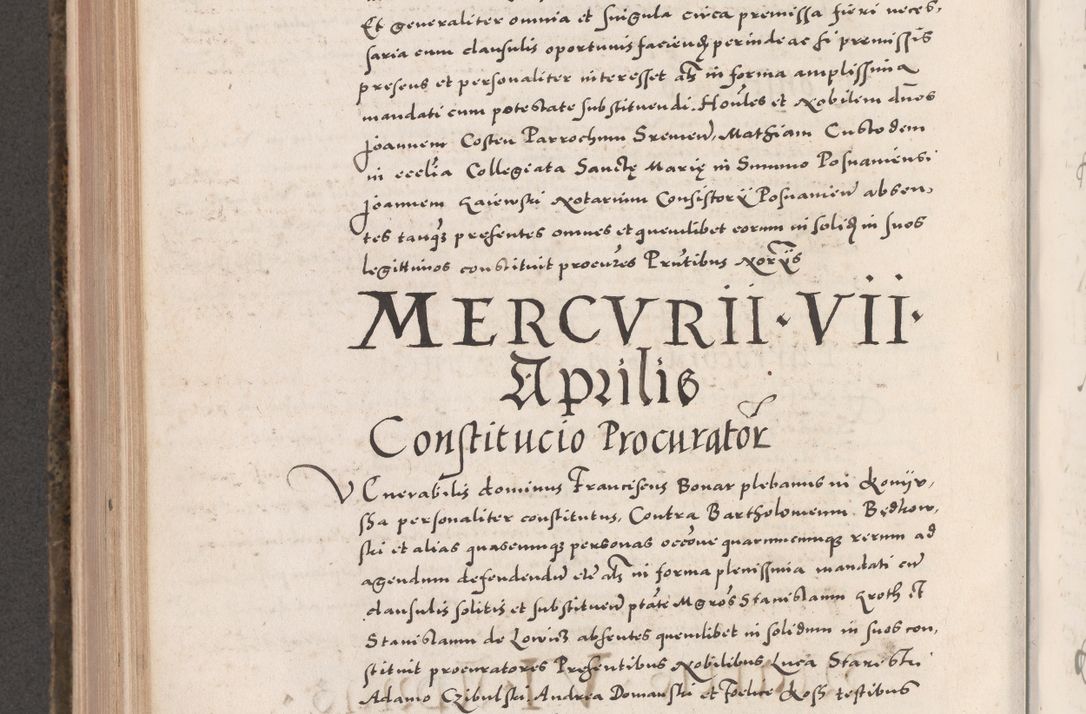 Et generaliter omnia et singula circa premissa fieri neces,
saria cum clausulis oportunis faciend perinde ac si premissis
presens et personaliter interesset als in forma amplissima
mandati cum potestate substituendi. Hoῦles et Nobilem dnos
Joannem Costen Parrochum Sremen, Mathiam Custodem
in ecclia Collegiata Sanctę Marię in Summo Posnaniensi
Joannem Kaiewski Notarium Consistorij Posnanien absen,
tes tanq presentes omnes et quemlibet eorum in solid in suos
legittimos constituit procures Pntibus Norijs
MERCVRII · VII ·
Aprilis
Constitucio Procurator
VEnerabilis dominus Franciscus Bonar plebanus in
ssa personaliter constitutus, Contra Bartholomeum Będkow,
ski et alias quascunq personas occone quarumcunq rerum ad
agendum defendendu etc als in forma plenissima mandati cu
clausulis solitis et substituen ptate Mgros Stanislaum Kroth et
Stanislaum de Lowicz absentes quemlibet in solidum in suos con,
stituit procuratores Presentibus Nobilibus Luca
Adamo Czibulski Andrea Domanski et Foelice testibus